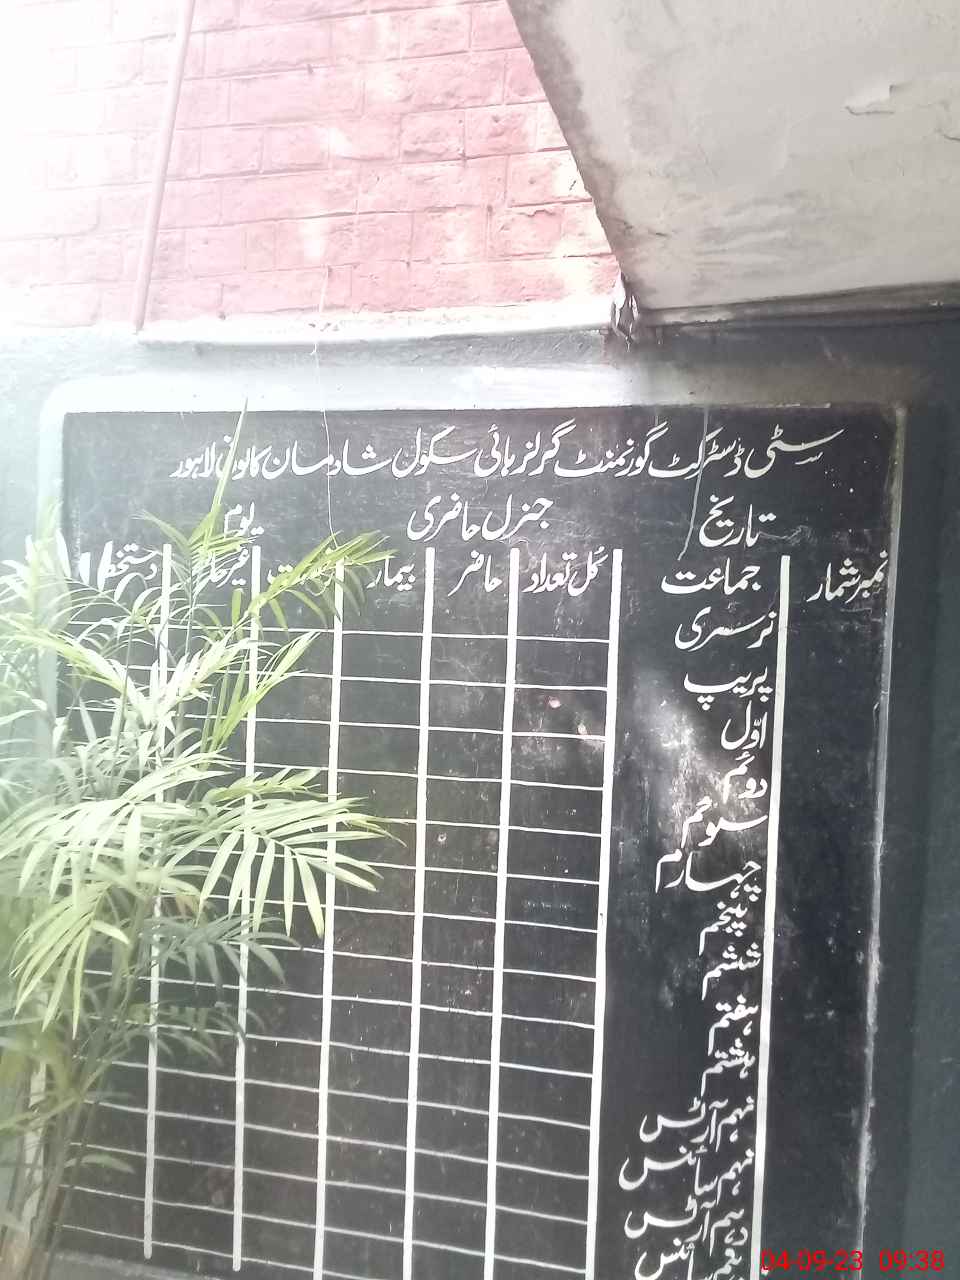 سٹی ڈسٹرکٹ گورنمنٹ گرلز ہائی سکول شادمان کالونی لاہور
تاریخ جنرل حاضری یوم
نمبر شمار جماعت کل تعداد حاضر بیمار
نرسری
پریپ
اوّل
دوئم
سوئم
چہارم
پنجم
ششم
ہفتم
ہشتم
نہم آرٹس
نہم سائنس
دہم آرٹس
دہم سائنس
04-09-23 09:38